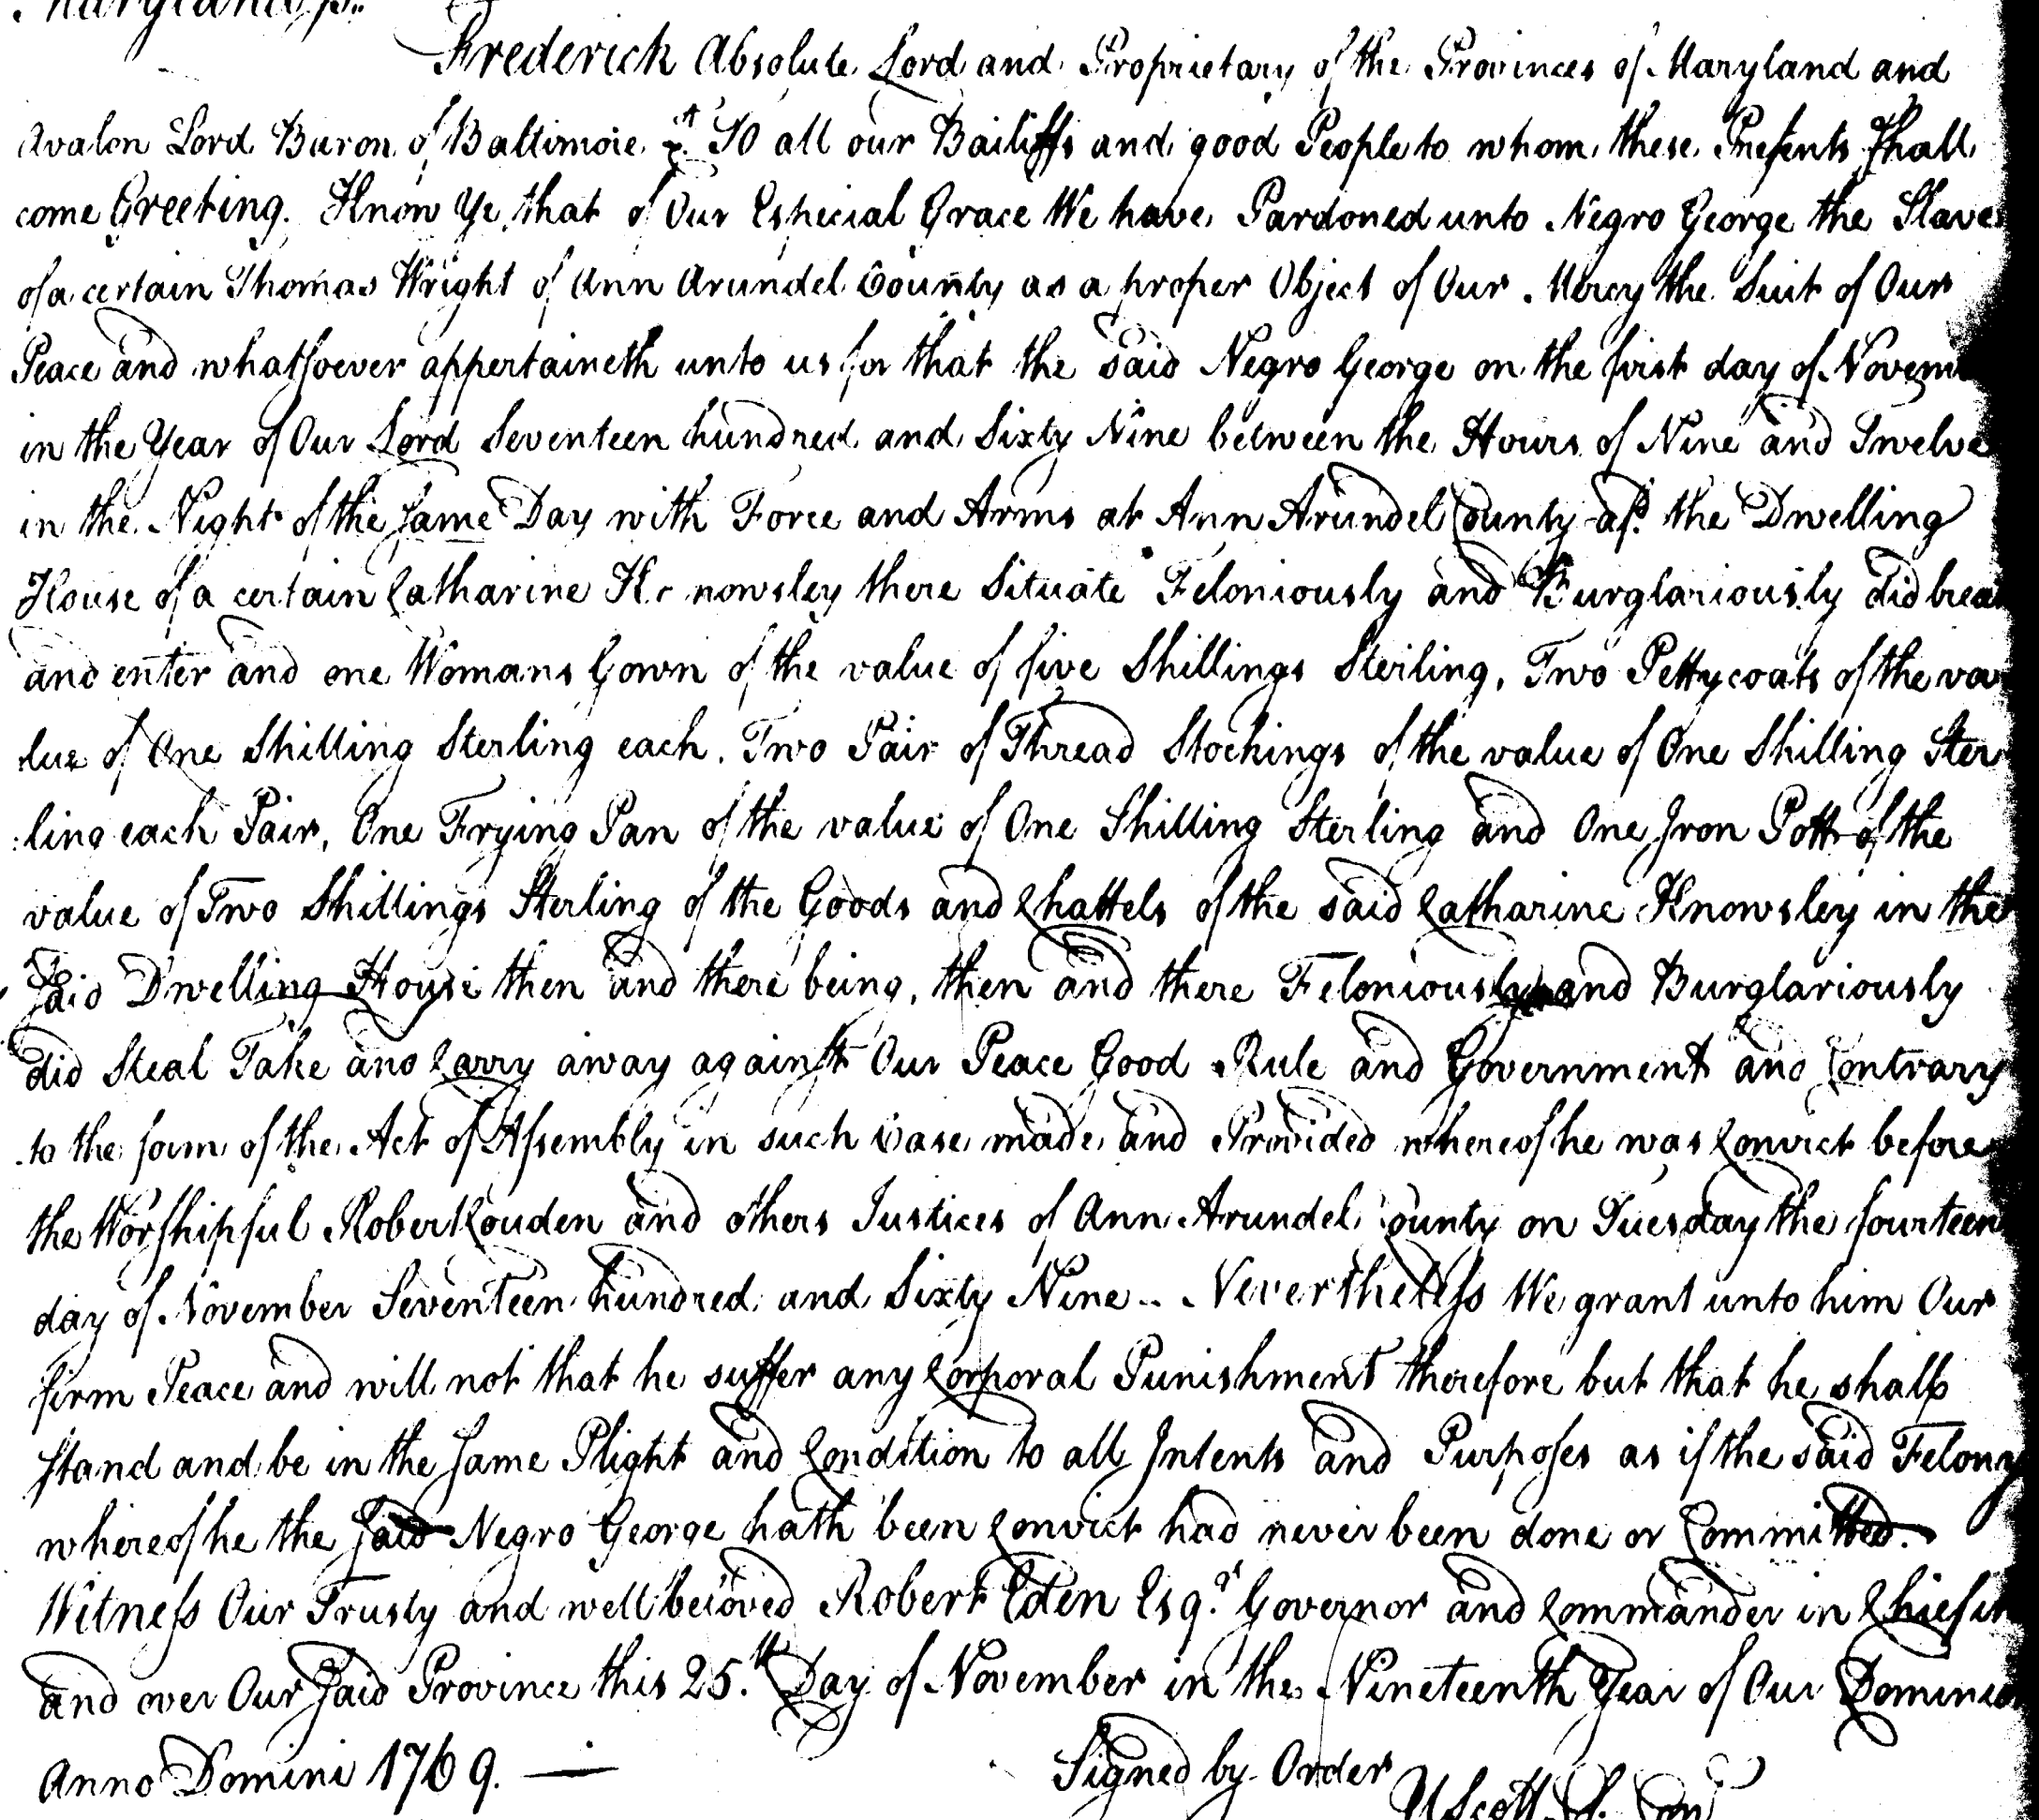 Maryland ss.
Frederick Absolute Lord and Proprietary of the Provinces of Maryland and
Avalon Lord Baron of Baltimore &ct. To all our Bailiffs and good People to whom these Presents Shall
come Greeting. Know Ye that of Our Especial Grace We have Pardoned unto Negro George the Slave
of a certain Thomas Wright of Ann Arundel County as a proper Object of Our Mercy the Suit of Our
Peace and whatsoever appertaineth unto us for that the said Negro George on the first day of Novem
in the Year of Our Lord Seventeen hundred and Sixty Nine between the Hours of Nine and Twelve
in the Night of the Same Day with Force and Arms at Ann Arundel County afd. the Dwelling
House of a certain Catharine Knowsley there Situate Feloniously and Burglariously did brea
and enter and one Womans Gown of the value of five Shillings Sterling, Two Pettycoats of the va
lue of One Shilling Sterling each, Two Pair of Thread Stockings of the value of One Shilling Ster
ling each Pair, One Frying Pan of the value of One Shilling Sterling and One Iron Pott of the
value of Two Shillings Sterling of the Goods and Chattels of the said Catharine Knowsley in the
Said Dwelling House then and there being, then and there Feloniously and Burglariously
did Steal Take and Carry away against Our Peace Good Rule and Government and Contrary
to the form of the Act of Assembly in such Case made and Provided whereof he was Convict before
the Worshipful Robert Couden and others Justices of Ann Arundel County on Tuesday the fourteen
day of November Seventeen hundred and Sixty Nine.. Nevertheless We grant unto him Our
firm Peace and will not that he suffer any Corporal Punishment therefore but that he shall
stand and be in the Same Plight and Condition to all Intents and Purposes as if the said Felony
whereof he the Said Negro George hath been Convict had never been done or Committed.
Witness Our Trusty and well beloved Robert Eden Esqr. Governor and Commander in Chief in
and over Our Said Province this 25th. Day of November in the Nineteenth Year of Our Dominio
Anno Domini 1769. —
Signed by Order
U Scott